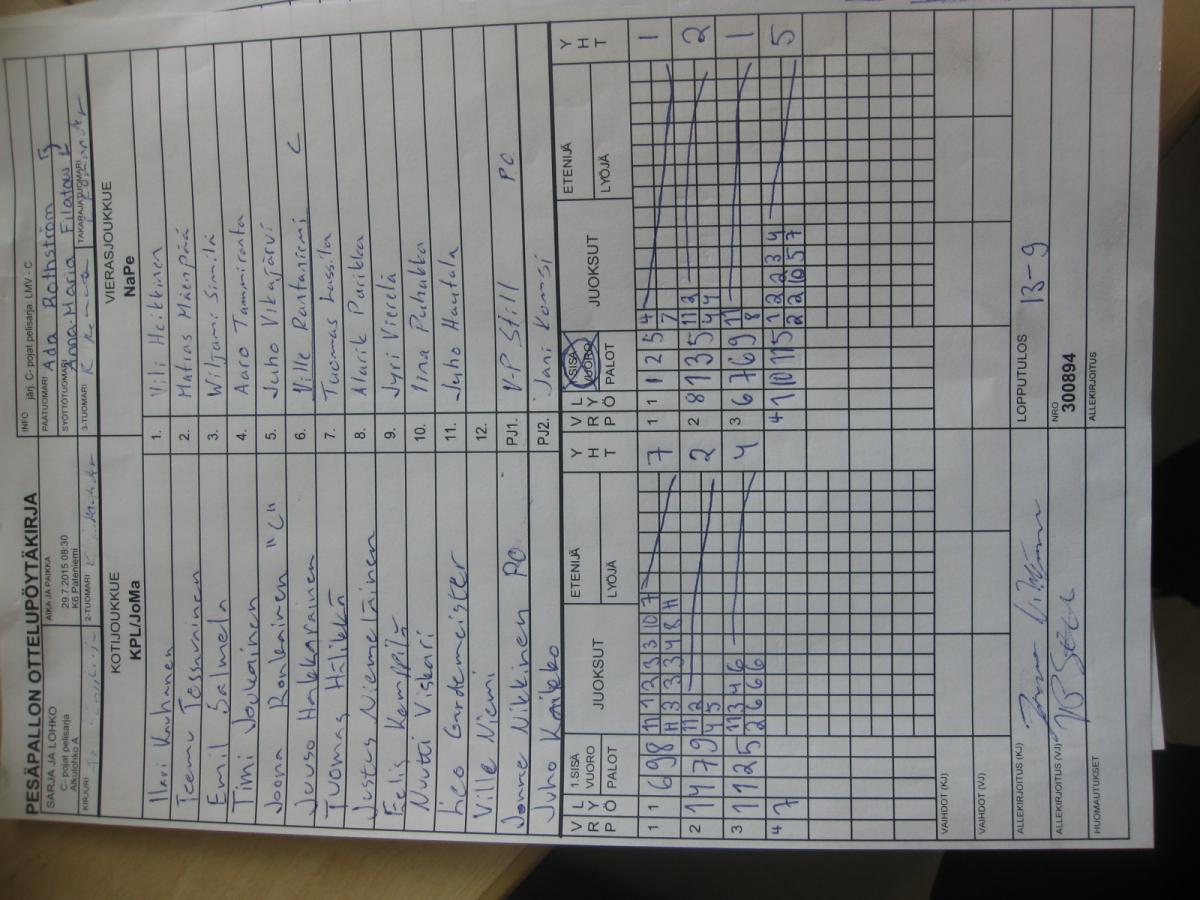 PESÄPALLON OTTELUPÖYTÄKIRJA
SARJA JA LOHKO
C- pojat pelisarja
Alkulohko A
AIKA JA PAIKKA
29.7.2015 08:30
K6 Pateniemi
INFO järj. C- pojat pelisarja: LMV - C
PÄÄTUOMARI Ada Rothström
SYÖTTÖTUOMARI Anna-Maria Filatov
KIRJURI
2-TUOMARI
3-TUOMARI
TAKARAJATUOMARI
KOTIJOUKKUE
KPL/JoMa
VIERASJOUKKUE
NaPe
Ilari Kauhanen 1. Vili Heikkinen
Teemu Tossavainen 2. Matias Mäenpää
Emil Salmela 3. Wiljami Similä
Timi Joukainen 4. Aaro Tammiranta
Joona Ronkainen "C" 5. Juho Vikajärvi
Juuso Hakkarainen 6. Ville Rantaniemi C
Tuomas Hälikkä 7. Tuomas Lassila
Justus Niemeläinen 8. Alarik Parikka
Eelis Kemppi 9. Jyri Vierelä
Nuutti Viskari 10. Iina Puhakka
Leo Gardemeister 11. Juho Hautala
Ville Niemi 12.
Jonne Nikkinen PO PJ1. V-P Still PO
Juho Kaikko PJ2. Jani Komsi
VRP LYÖ 1.SISÄ VUORO PALOT JUOKSUT ETENIJÄ LYÖJÄ YHT
VRP LYÖ 1.SISÄ VUORO PALOT JUOKSUT ETENIJÄ LYÖJÄ YHT
1 1 6 9 8 7
1 1 1 2 5 4 7 1
2 1 4 7 9 11 2 4 5 2
2 8 1 3 5 11 2 4 4 2
3 1 1 2 5 11 3 4 6 2 6 6 6 4
3 6 7 6 9 11 8 1
4 7
4 1 10 11 5 1 2 2 3 4 2 2 10 5 7 5
VAIHDOT (KJ)
VAIHDOT (VJ)
ALLEKIRJOITUS (KJ)
LOPPUTULOS 13-9
ALLEKIRJOITUS (VJ)
NRO
300894
HUOMAUTUKSET
ALLEKIRJOITUS